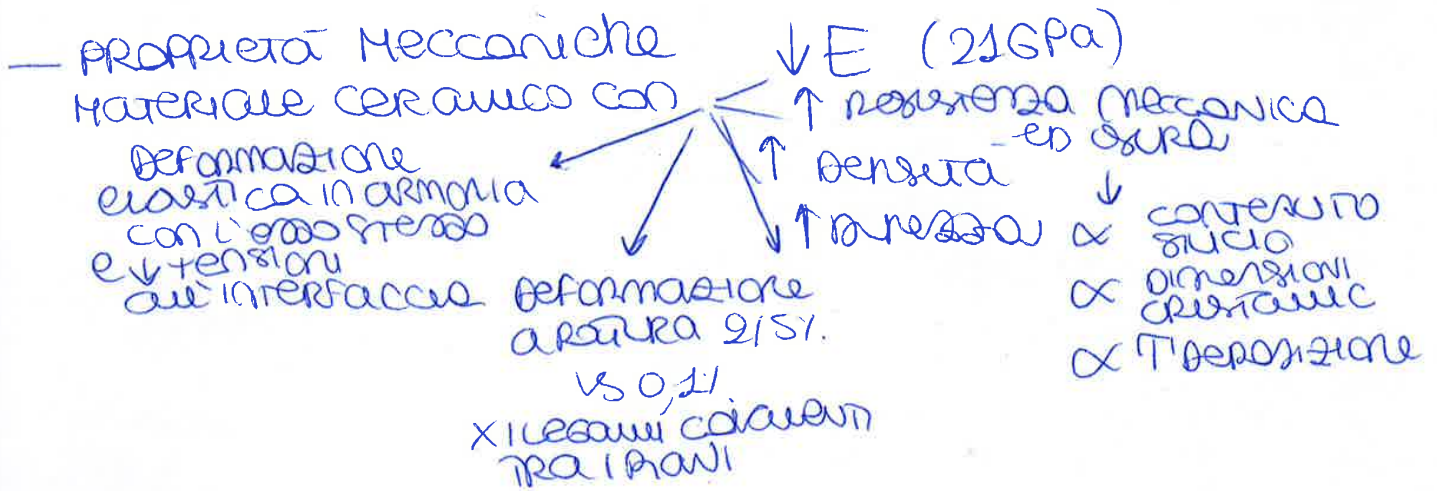 — PROPRIETÀ MECCANICHE
MATERIALE CERAMICO CON
↓ E (21GPa)
↑ RESISTENZA MECCANICA
ED USURA
↑ DENSITÀ
↑ DUREZZA
↓
∝ CONTENUTO
SILICIO
∝ DIMENSIONI
CRISTALLIC
∝ T° DEPOSIZIONE
DEFORMAZIONE
ELASTICA IN ARMONIA
CON L'OSSO STESSO
E ↓ TENSIONI
ALL'INTERFACCIA
DEFORMAZIONE
A ROTTURA 2/5%.
VS 0,1%
X I LEGAMI COVALENTI
TRA I PIANI